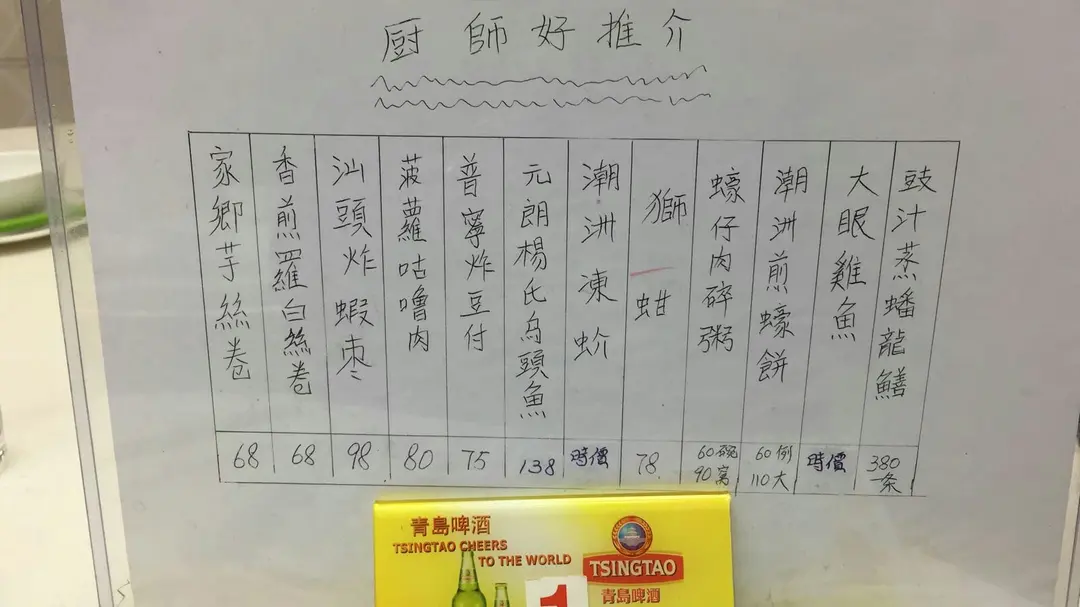 厨師好推介
豉汁蒸蟠龍鱔
380一条
大眼雞魚
時價
潮洲煎蠔餅
60例
110大
蠔仔肉碎粥
60碗
90窩
獅蚶
78
潮洲凍蚧
時價
元朗楊氏烏頭魚
138
普寧炸豆付
75
菠蘿咕嚕肉
80
汕頭炸蝦枣
98
香煎羅白絲卷
68
家鄉芋絲卷
68
青島啤酒
TSINGTAO CHEERS
TO THE WORLD
TSINGTAO
青島啤酒
1